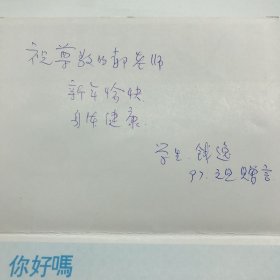 祝尊敬的郭老师
新年愉快
身体健康
学生 钱逸
97.元旦赠言
你好嗎